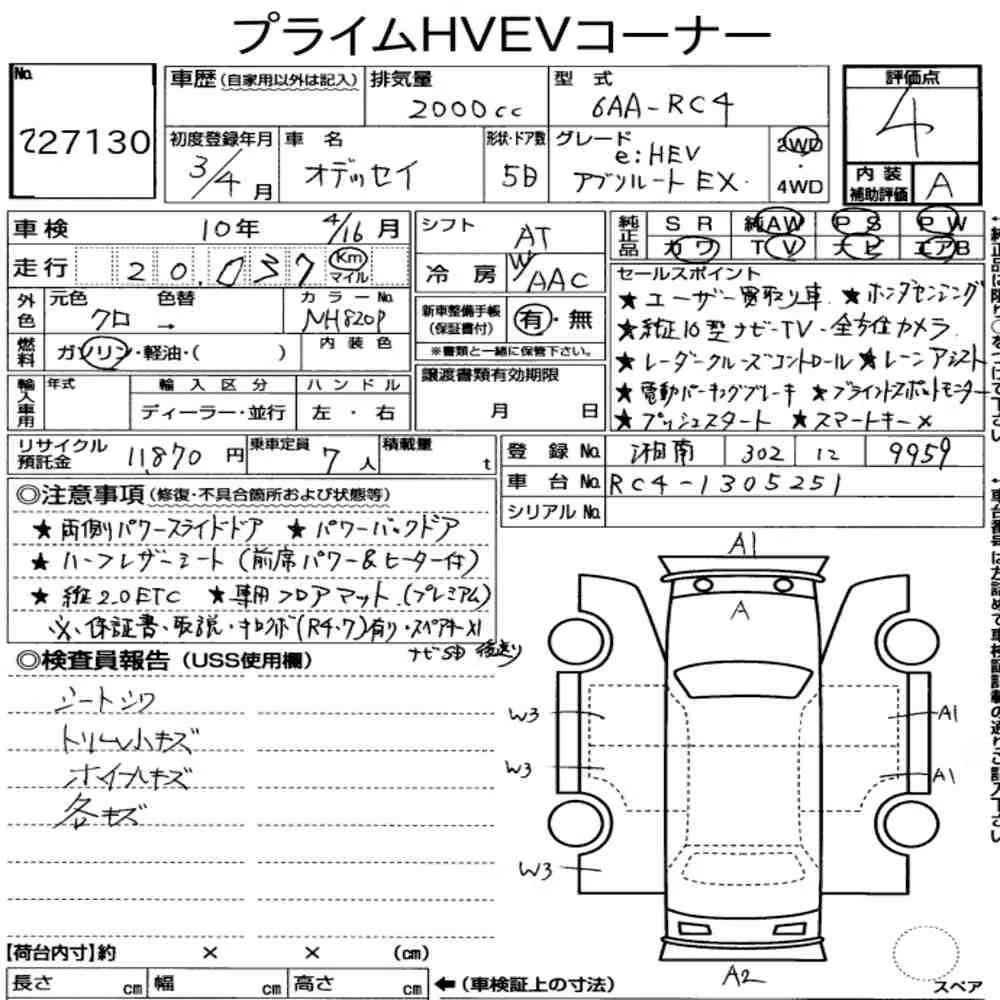 プライムHVEVコーナー
No. 727130
車歴(自家用以外は記入) 排気量 2000cc 型式 6AA-RC4 評価点 4
初度登録年月 3/4月 車名 オデッセイ 形状・ドア数 5D グレード e:HEV アブソルート EX. 2WD・4WD
内装補助評価 A
車検 10年 4/16月 シフト AT 純正品 SR 純AW PS PW
カワ TV ナビ エアB
走行 20,037 Km マイル 冷房 W/AAC
外色 元色 クロ → 色替 カラーNo. NH820P 内装色
新車整備手帳(保証書付) 有・無
※書類と一緒に保管下さい。
燃料 ガソリン・軽油・( )
譲渡書類有効期限 月 日
輸入車用 年式 輸入区分 ハンドル
ディーラー・並行 左・右
セールスポイント
★ユーザー買取り車 ★ホンダセンシング
★純正10型ナビ-TV・全方位カメラ
★レーダークルーズコントロール★レーンアシスト
★電動パーキングブレーキ ★ブラインドスポットモニター
★プッシュスタート ★スマートキー×
リサイクル預託金 11,870円 乗車定員 7人 積載量 t
登録No. 湘南 302 12 9959
車台No. RC4-1305251
シリアルNo.
◎注意事項(修復・不具合箇所および状態等)
★両側パワースライドドア ★パワーバックドア
★ハーフレザーシート(前席パワー&ヒーター付)
★純正2.0ETC ★専用フロアマット.(プレミアム)
※.保証書・取説・キロクボ(R4.7)有り・スペアキー×1
ナビSD 後送り
◎検査員報告(USS使用欄)
シートシワ
トリム小キズ
ホイールキズ
各キズ
A1
A
W3 A1
W3 A1
W3
A2
スペア
【荷台内寸】約 × × (cm)
長さ cm 幅 cm 高さ cm ←(車検証上の寸法)